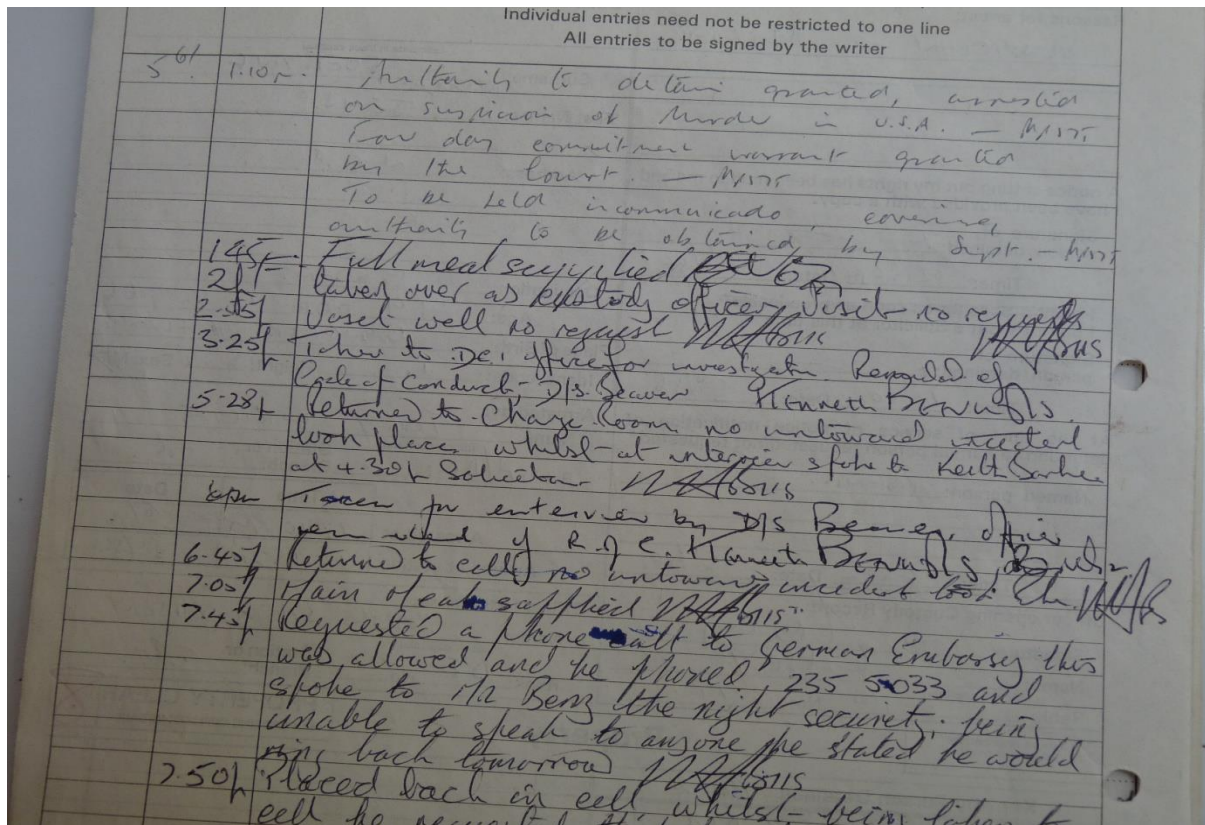 Individual entries need not be restricted to one line
All entries to be signed by the writer
5th. 1.10p. Authority to detain granted, arrested
on suspicion of Murder in U.S.A. —
Four day commitment warrant granted
by the Court. —
To be held incommunicado, covering,
authority to be obtained by Supt. —
1.45p Full meal supplied
2p taken over as custody officer Visit no requests
2.55p Visit well no request
3.25p Taken to DCI office for investigation Reminded of
Code of Conduct - D/S Beaver Kenneth D/S.
5.28p Returned to Charge Room no untoward incident
took place whilst at interview spoke to Keith
at 4.30p Solicitor
6pm Taken for interview by D/S Beaver, officer
reminded of Kenneth D/S
6.45p Returned to cell no untoward incident took
7.05p Main Meal supplied
7.45p Requested a phone call to German Embassy this
was allowed and he phoned 235 5033 and
spoke to Mr Benz the night security. being
unable to speak to anyone he stated he would
ring back tomorrow
7.50p Placed back in cell, whilst being taken to
cell he